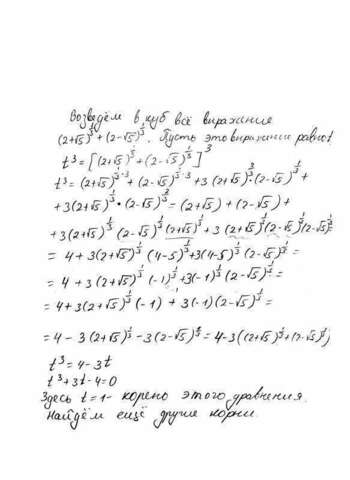 Возведём в куб всё выражение
(2+√5)^⅓ + (2-√5)^⅓. Пусть это выражение равно t
t³ = [(2+√5)^⅓ + (2-√5)^⅓]³
t³ = (2+√5)^⅓·³ + (2-√5)^⅓·³ + 3(2+√5)^⅔·(2-√5)^⅓ +
+ 3(2+√5)^⅓·(2-√5)^⅔ = (2+√5) + (2-√5) +
+ 3(2+√5)^⅓ (2-√5)^⅓ (2+√5)^⅓ + 3(2+√5)^⅓ (2-√5)^⅓ (2-√5)^⅓ =
= 4 + 3(2+√5)^⅓ (4-5)^⅓ + 3(4-5)^⅓ (2-√5)^⅓ =
= 4 + 3(2+√5)^⅓ (-1)^⅓ + 3(-1)^⅓ (2-√5)^⅓ =
= 4 + 3(2+√5)^⅓ (-1) + 3(-1)(2-√5)^⅓ =
= 4 - 3(2+√5)^⅓ - 3(2-√5)^⅓ = 4-3((2+√5)^⅓+(2-√5)^⅓)
t³ = 4-3t
t³+3t-4=0
Здесь t=1- корень этого уравнения.
Найдём ещё другие корни.